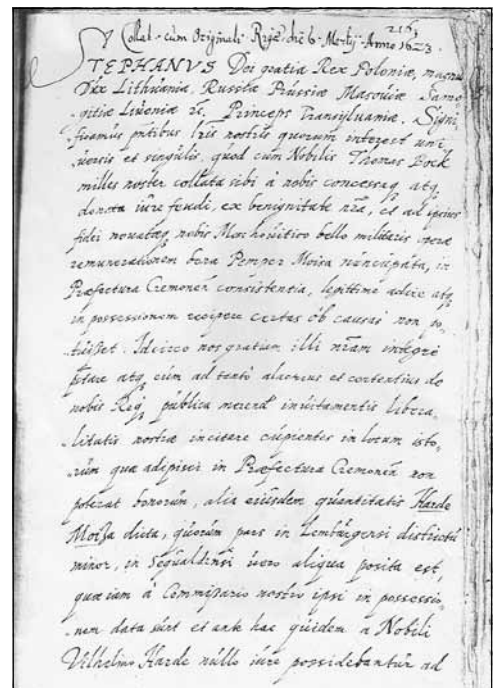 216
Collat. cum Originali Rigæ die 6 Martij Anno 1623.
STEPHANVS Dei gratia Rex Poloniæ, magnus
Dux Lithuaniæ, Russiæ Prussiæ Masouiæ Samo
gitiæ Liuoniæ etc. Princeps Transyluaniæ. Signi
ficamus pntibus lris nostris quorum interest uni
uersis et singulis, quod cum Nobilis Thomas Bock
milles noster collata sibi à nobis concessaq. atq.
donata iure feudi, ex benignitate nra, et ad ipsius
fidei nobis Moschouitico bello militaris operæ
remunerationem bona Pemper Moisa nuncupata, in
Præfectura Cremonen consistentia, legitime adire atq.
in possessionem recipere certas ob causas non po
tuisset. Idcirco nos gratiam illi nram integre
pstare atq. eum ad tanto alacrius et contentius de
nobis Reiq. publica merend inuitamentis libera
litatis nostræ incitare cupientes in locum isto
rum quæ adipisci in Præfectura Cremonen non
poterat bonorum, alia eiusdem quantitatis Harde
Moiza dicta, quorum pars in Lemburgensi districtu
minor, in Segualdensi uero aliqua posita est,
quæ iam à Commissario nostro ipsi in possessio
nem data sunt et ante hac quidem a Nobili
Vilhelmo Harde nullo iure possidebantur ad